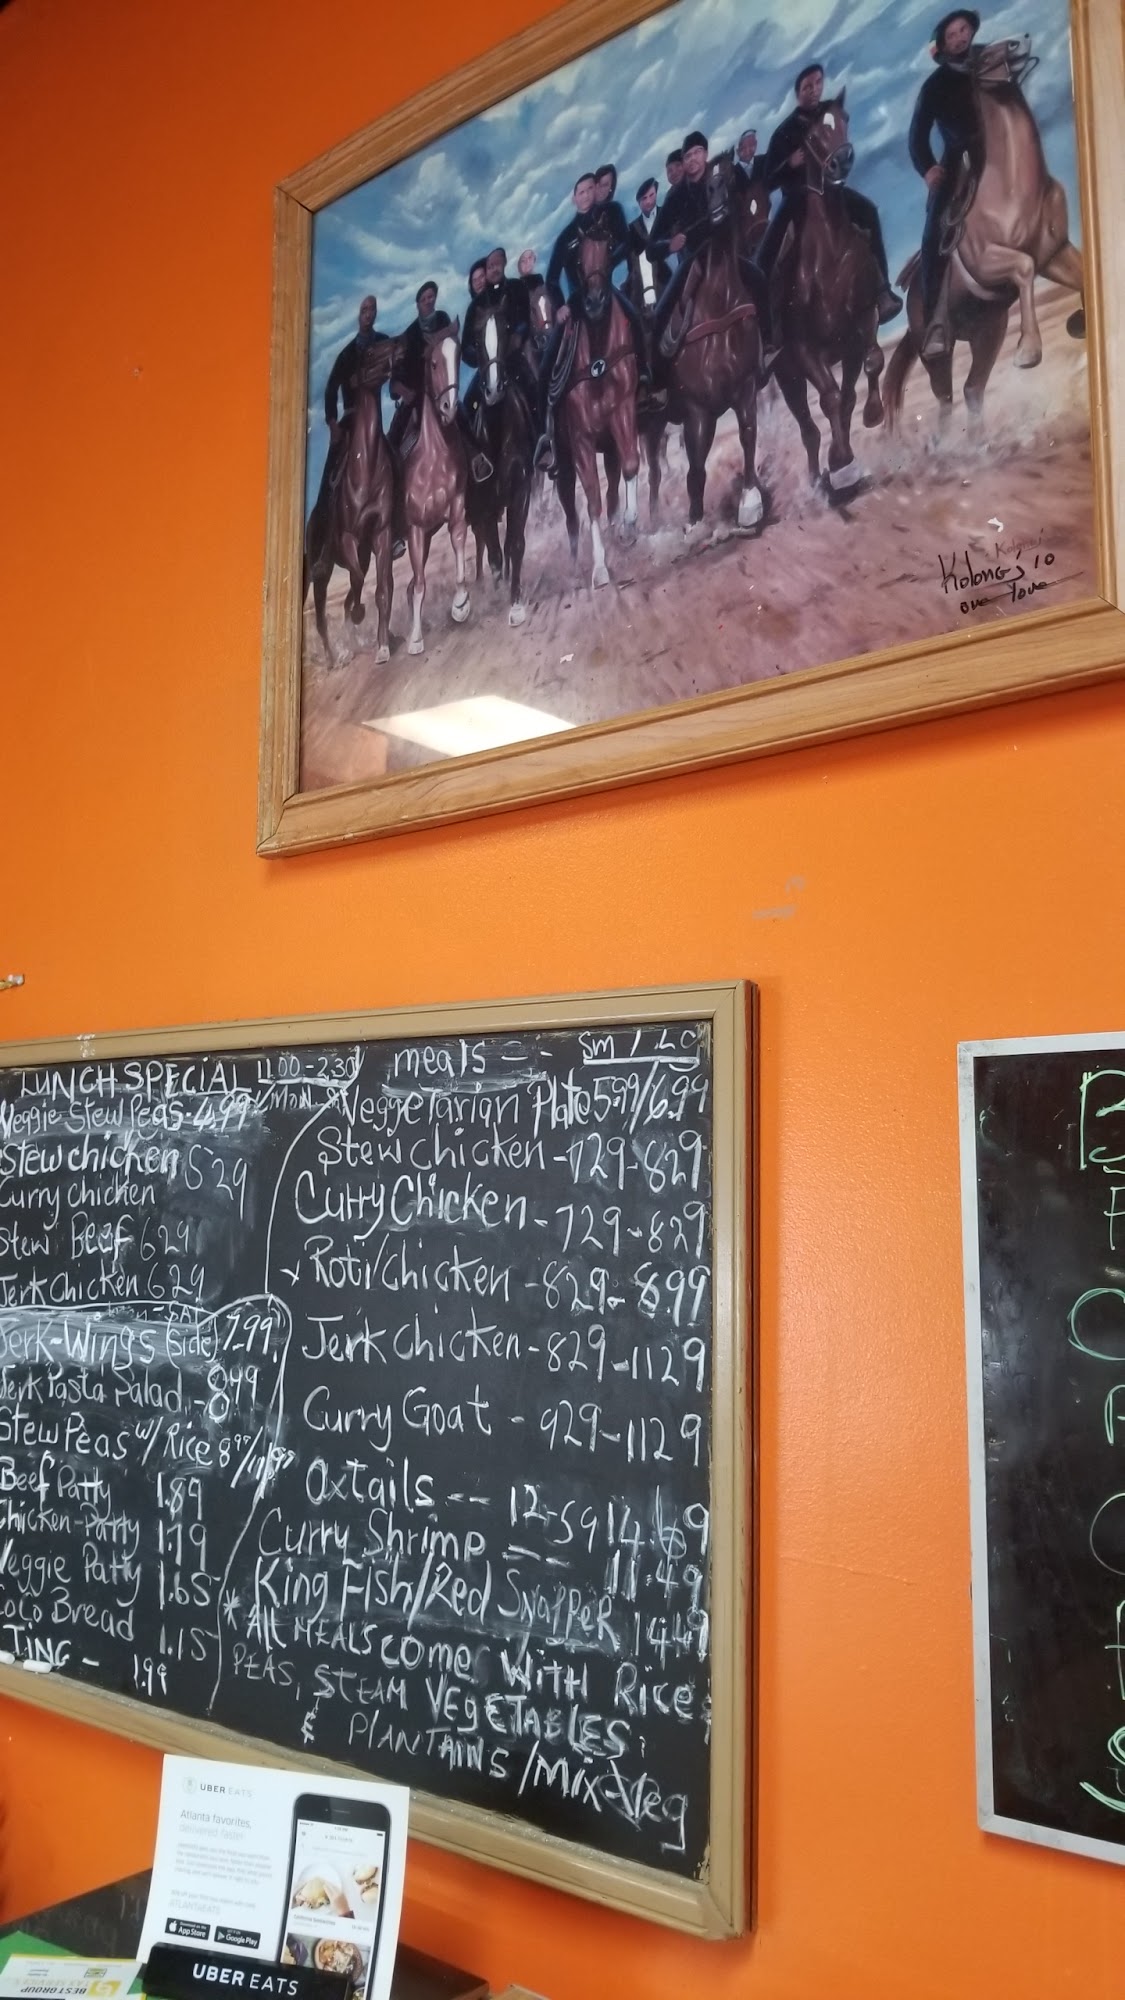 Kolongi
Kolongi's 10
one love
LUNCH SPECIAL 11.00-2.30
Veggie Stew Peas - 4.99
Stew chicken 529
Curry chicken
Stew Beef 629
Jerk Chicken 629
Jerk-Wings (side) 7.99
Jerk Pasta Salad - 899
Stew Peas w/ Rice 8⁹⁹/11⁹⁹
Beef Patty 1.89
Chicken-Patty 1.79
Veggie Patty 1.65
CoCo Bread 1.15
TING - 1.99
meals -- SM / LG
Veggetarian Plate 5.99/6.99
Stew Chicken - 729-829
Curry Chicken - 729-829
Roti/Chicken - 829-899
Jerk Chicken - 829-1129
Curry Goat - 929-1129
Oxtails -- 12-59 14.69
Curry Shrimp -- 11.49
King Fish/Red Snapper 1449
* All MEALS come With Rice
PEAS, STEAM VEgETABLES,
& PlANTAINS/Mix-Veg
UBER EATS
Atlanta favorites,
delivered faster
App Store
Google Play
UBER EATS
BEST GROUP
TAX SERVICES